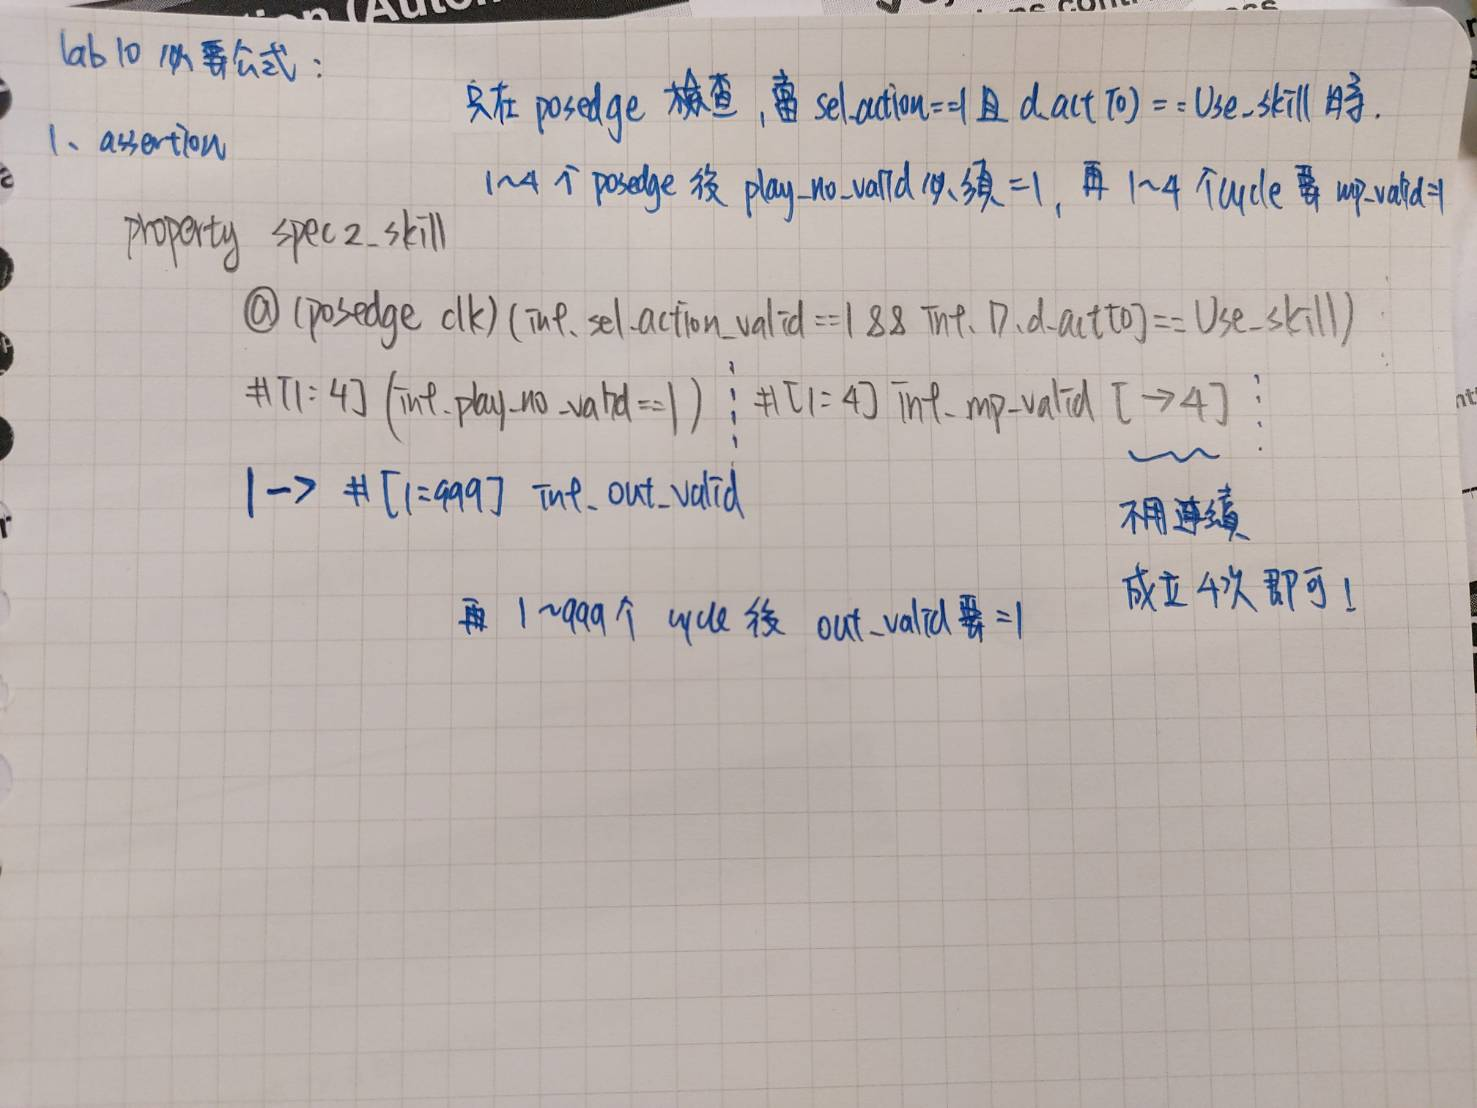 lab 10 必要公式：
只在 posedge 檢查，當 sel_action==1 且 d_act[0]==Use_skill 時．
1、assertion
1~4 个 posedge 後 play_no_valid 必須 =1，再 1~4 个 cycle 要 mp_valid=1
property spec2_skill
@(posedge clk)(inf.sel_action_valid==1 && inf.D.d_act[0]==Use_skill)
#[1:4](inf.play_no_valid==1) #[1:4] inf.mp_valid [→4]
|-> #[1:999] inf.out_valid
不用連續
成立 4次 即可！
再 1~999个 cycle 後 out_valid 要=1